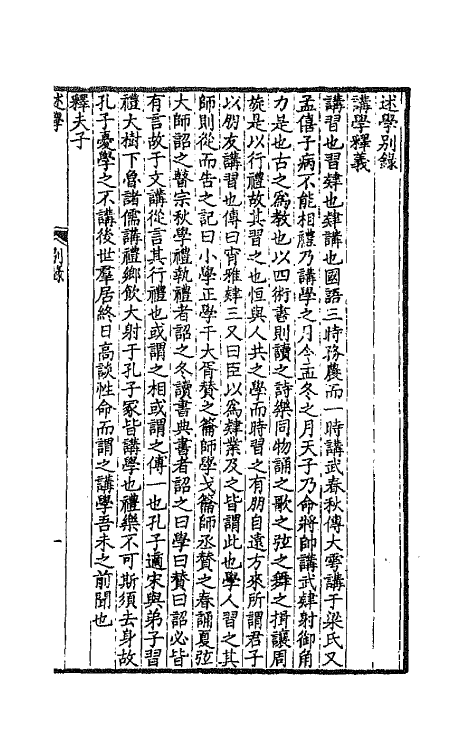 述學別錄
講學釋義
講習也習肄也肄講也國語三時務農而一時講武春秋傳大雩講于梁氏又
孟僖子病不能相禮乃講學之月令孟冬之月天子乃命將帥講武肄射御角
力是也古之為教也以四術書則讀之詩樂同物誦之歌之弦之舞之揖讓周
旋是以行禮故其習之也恒與人共之學而時習之有朋自遠方來所謂君子
以朋友講習也傳曰宵雅肄三又曰臣以為肄業及之皆謂此也學人習之其
師則從而告之記曰小學正學干大胥贊之籥師學戈籥師丞贊之春誦夏弦
大師詔之瞽宗秋學禮執禮者詔之冬讀書典書者詔之曰學曰贊曰詔必皆
有言故于文講從言其行禮也或謂之相或謂之傅一也孔子適宋與弟子習
禮大樹下魯諸儒講禮鄉飲大射于孔子冢皆講學也禮樂不可斯須去身故
孔子憂學之不講後世羣居終日高談性命而謂之講學吾未之前聞也
釋夫子
述學
別錄
一